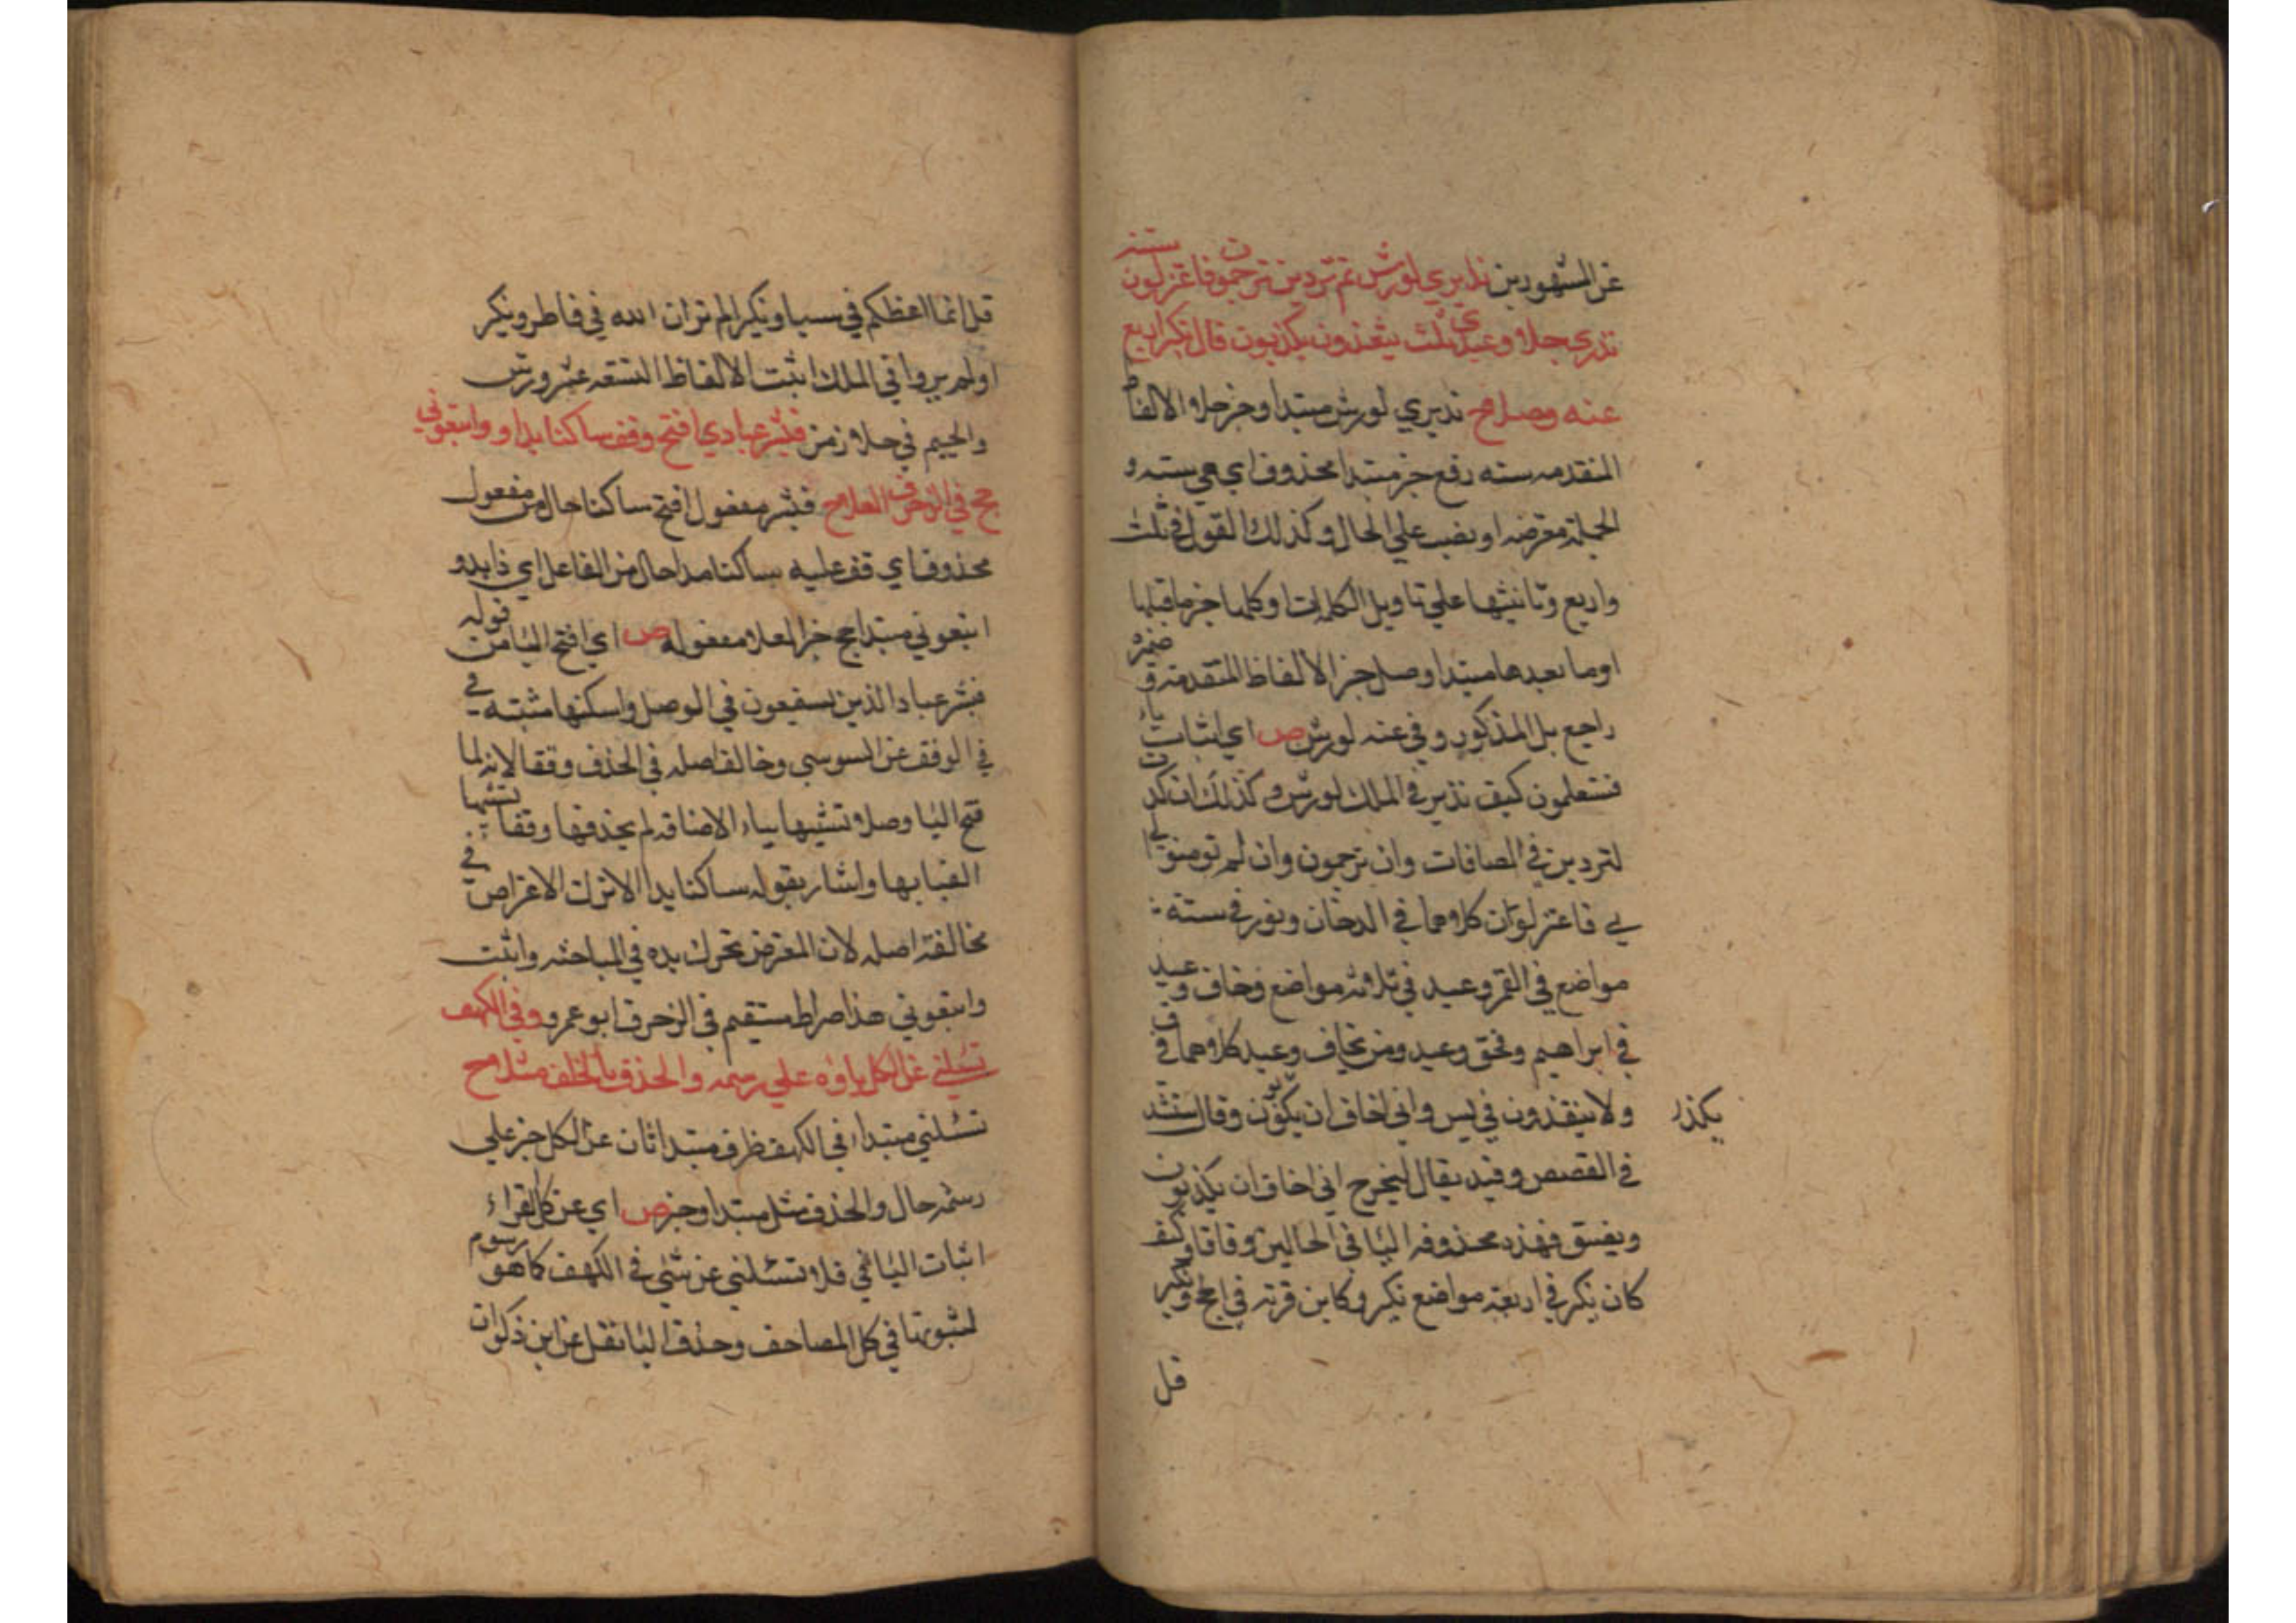 عن المشهورين نذيري لورش ثم تردين ترجمون فاعتزلون ستة
نذري جلا وعيدي ثلث ينقذون يكذبون قال نكير اربع
عنه وصلا ح نذيري لورش مبتدا وخبر جلا الالفاظ
المتقدمه سته رفع خبر مبتدا محذوف اي هي سته و
الجملة معترضه او نصب علي الحال وكذلك القول في ثلث
واربع وتانيثها علي تاويل الكلمات وكلها خبر ما قبلها
اوما بعدها مبتدا وصل خبر الالفاظ المتقدمة و ضمير
راجع بل المذكور وفي عنه لورش ص اي اثبات ياء
فستعلمون كيف نذير في الملك لورش وكذلك ان كدت
لتردين في الصافات وان ترجمون وان لم تومنوا لي
بي فاعتزلون كلاهما في الدخان ونذر في سته
مواضع في القمر وعيد في ثلاثه مواضع وخاف وعيد
في ابراهيم وفحق وعيد ومن يخاف وعيد كلاهما في ق
ولا ينقذون في يس واني اخاف ان يكذبون وقال سنشد
يكذبو
في القصص وقيد بقال ليخرج اني اخاف ان يكذبون
ويضيق فهذه محذوفه اليا في الحالين وفاقا وكيف
كان نكير في اربعة مواضع نكير وكاين من قرية في الحج ونكير
قل
قل انما اعظكم في سبا ونكير الم تر ان الله في فاطر ونكير
اولم يروا في الملك اثبت الالفاظ التسعه عشر ورش
والجيم في جلا زمن فبشر عبادي افتح وقف ساكنا يدا و واتبعوني
حج في الزخرف العلا ح فبشر مفعول افتح ساكنا حال من مفعول
محذوف اي قف عليه ساكنا يدا حال من الفاعل اي ذا يد و
اتبعوني مبتدا حج خبر العلا مفعوله ص اي افتح اليا من قوله
فبشر عباد الذين يستمعون في الوصل واسكنها مثبته في
في الوقف عن السوسي وخالف اصله في الحذف وقفا لانه لما
فتح اليا وصلا تشبيها بياء الاضافه لم يحذفها وقفا تشبيها
ايضا بها واشار بقوله ساكنا يدا الا ترك الاعتراض في
مخالفة اصله لان المعترض يحرك يده في المباحثه واثبت
واتبعوني هذا صراط مستقيم في الزخرف ابو عمرو وفي الكهف
تسئلني عن الكل ياؤه علي رسمه والحذف بالخلف مثلا ح
تسئلني مبتدا في الكهف ظرف مبتدا ثان عن الكل خبر علي
رسمه حال والحذف مثل مبتدا وخبر ص اي عن كل القراء
اثبات اليا في فلا تسئلني عن شي في الكهف كما هو مرسوم
لثبوتها في كل المصاحف وحذف اليا نقل عن ابن ذكوان